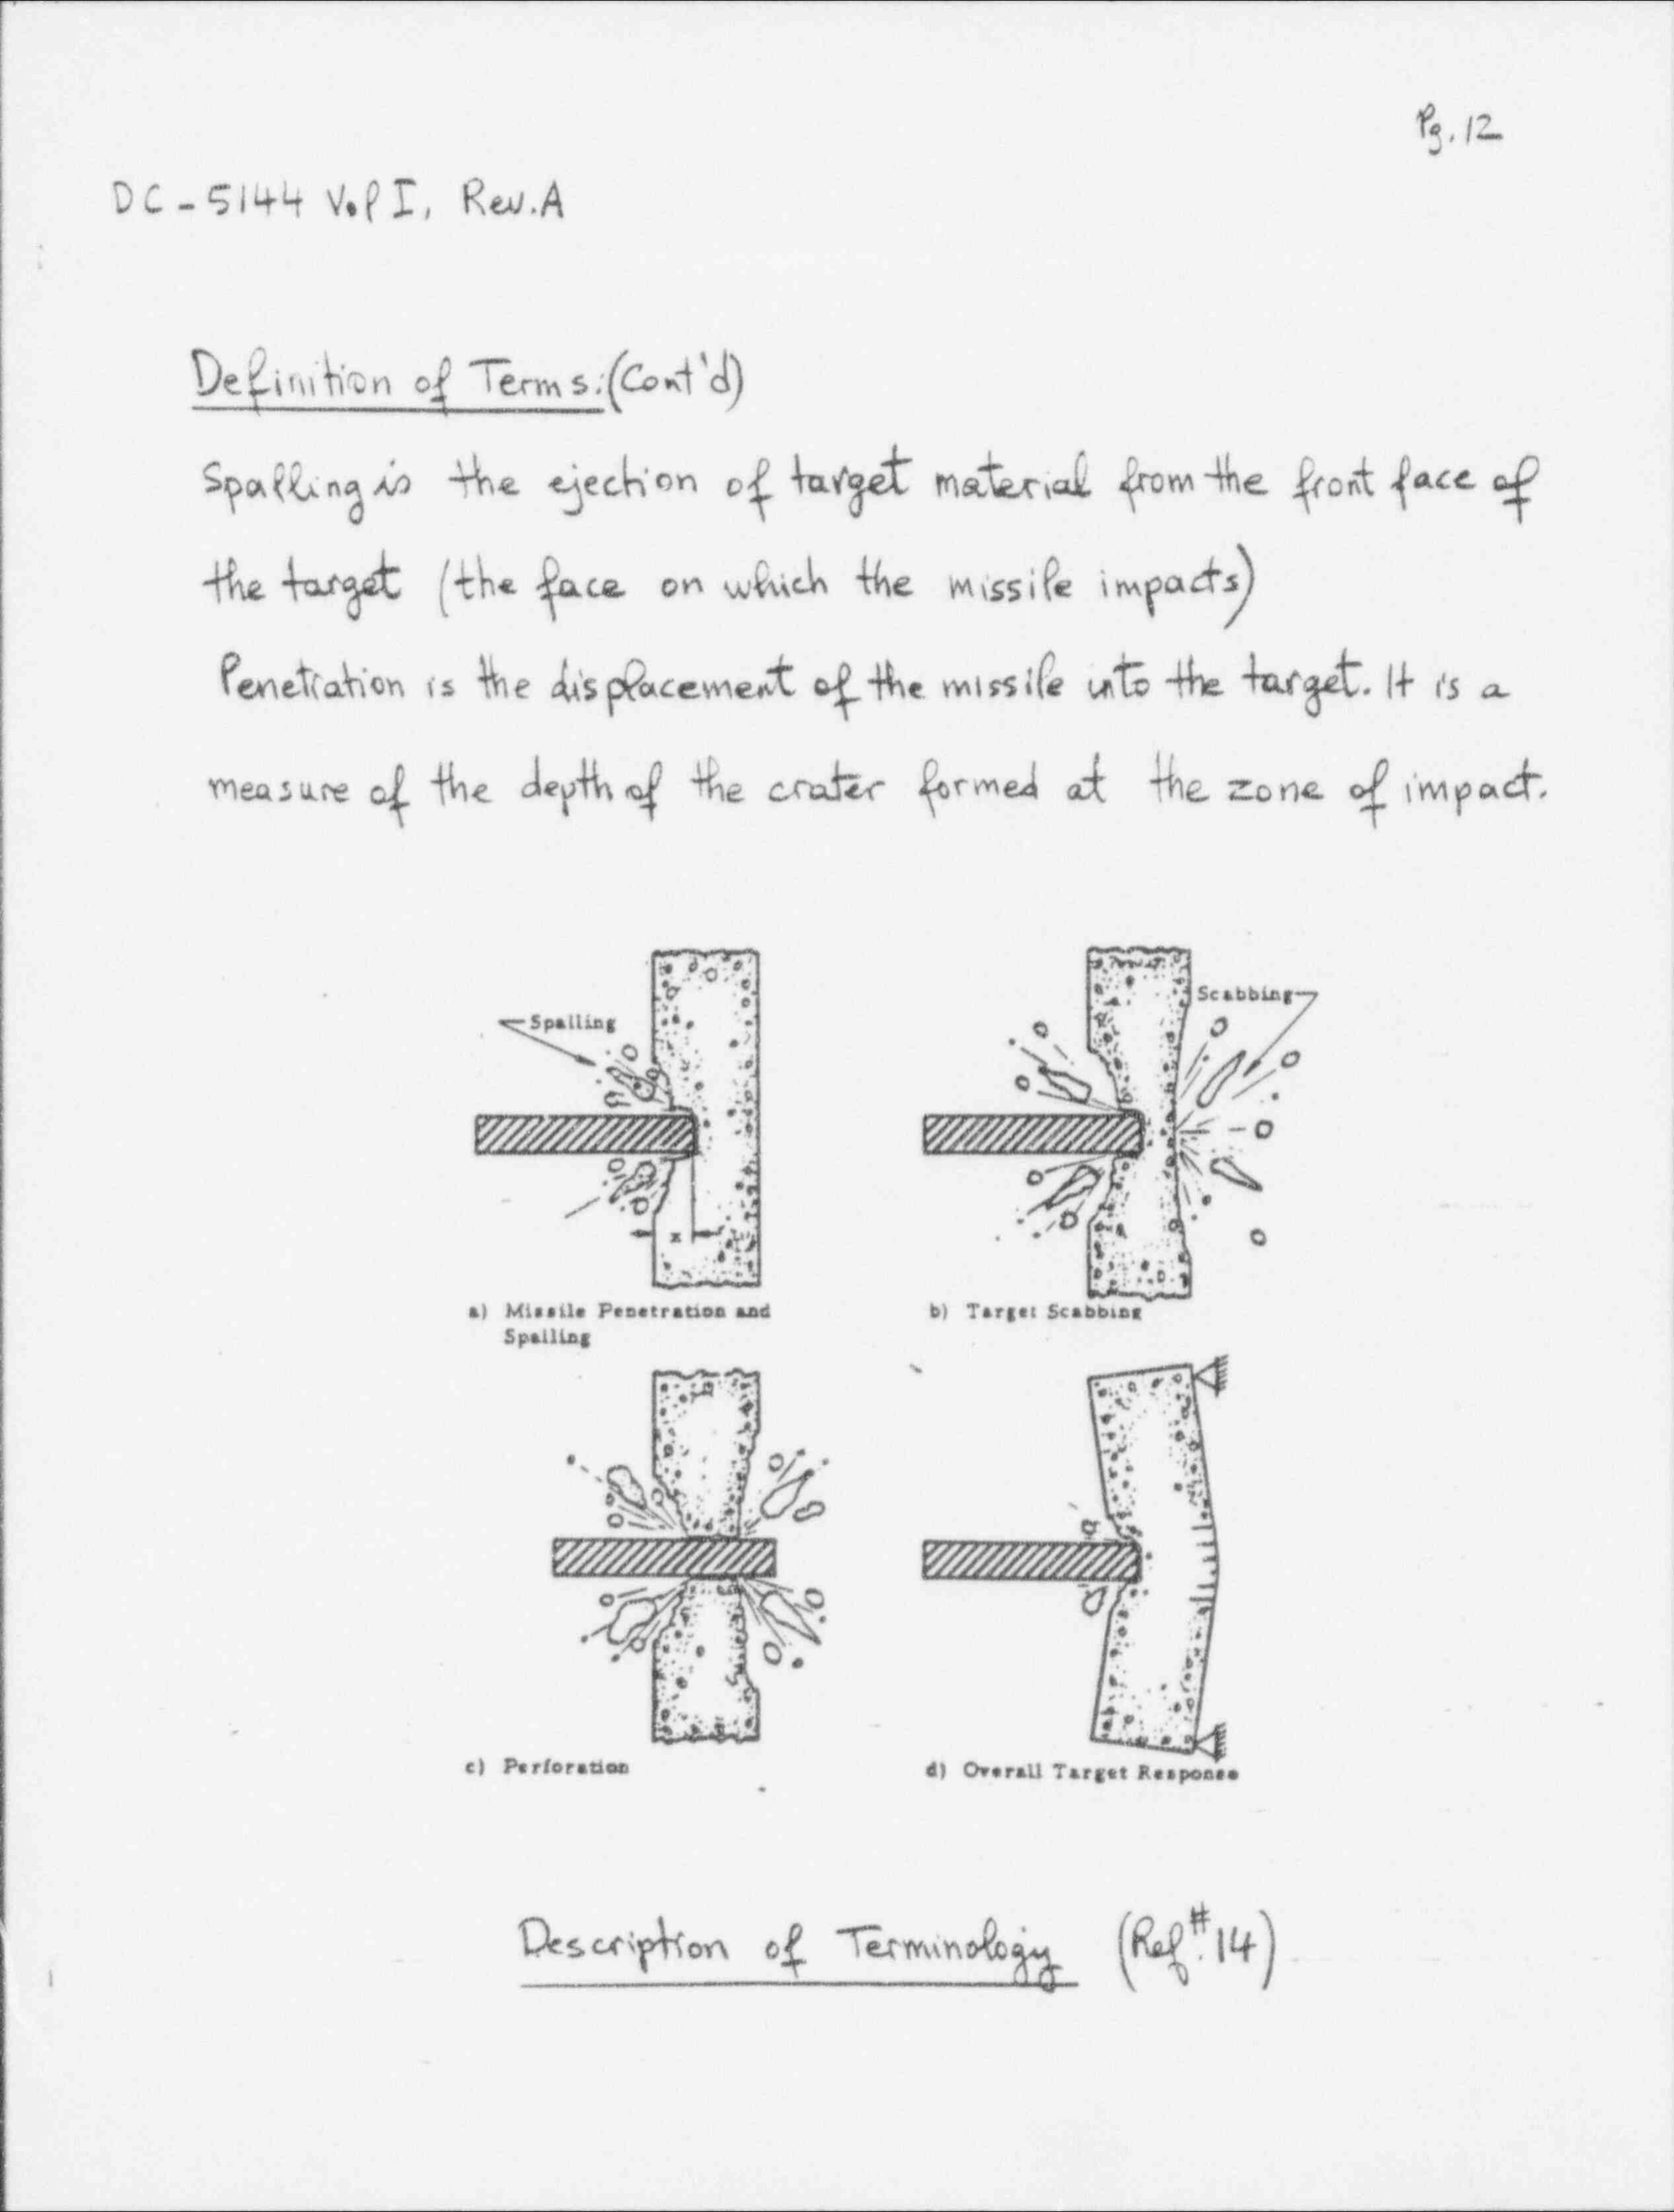 Pg. 12
DC-5144 Vol I, Rev. A
Definition of Terms: (Cont'd)
Spalling is the ejection of target material from the front face of
the target (the face on which the missile impacts)
Penetration is the displacement of the missile into the target. It is a
measure of the depth of the crater formed at the zone of impact.
Spalling
Scabbing
x
a) Missile Penetration and
Spalling
b) Target Scabbing
c) Perforation
d) Overall Target Response
Description of Terminology (Ref.# 14)